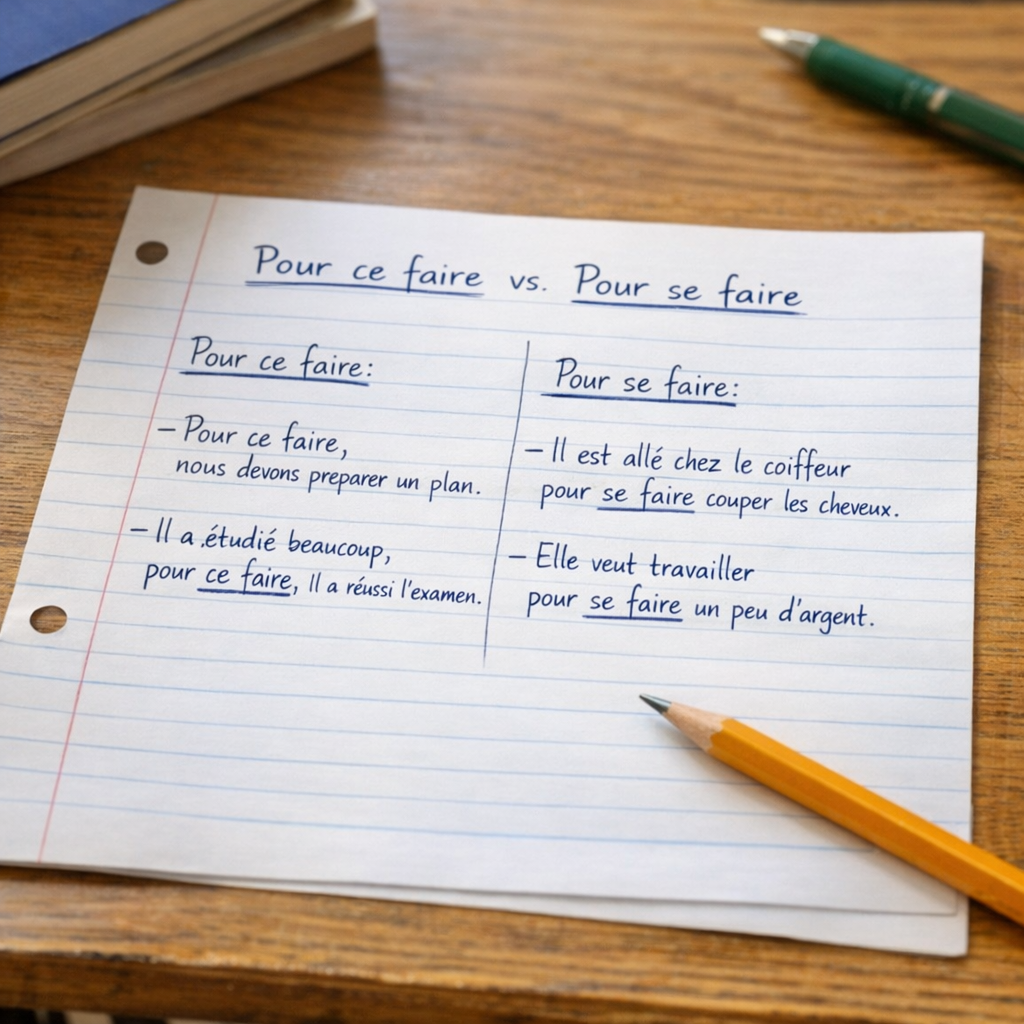 Pour ce faire vs. Pour se faire
Pour ce faire:
– Pour ce faire,
nous devons preparer un plan.
– Il a étudié beaucoup,
pour ce faire, il a réussi l'examen.
Pour se faire:
– Il est allé chez le coiffeur
pour se faire couper les cheveux.
– Elle veut travailler
pour se faire un peu d'argent.